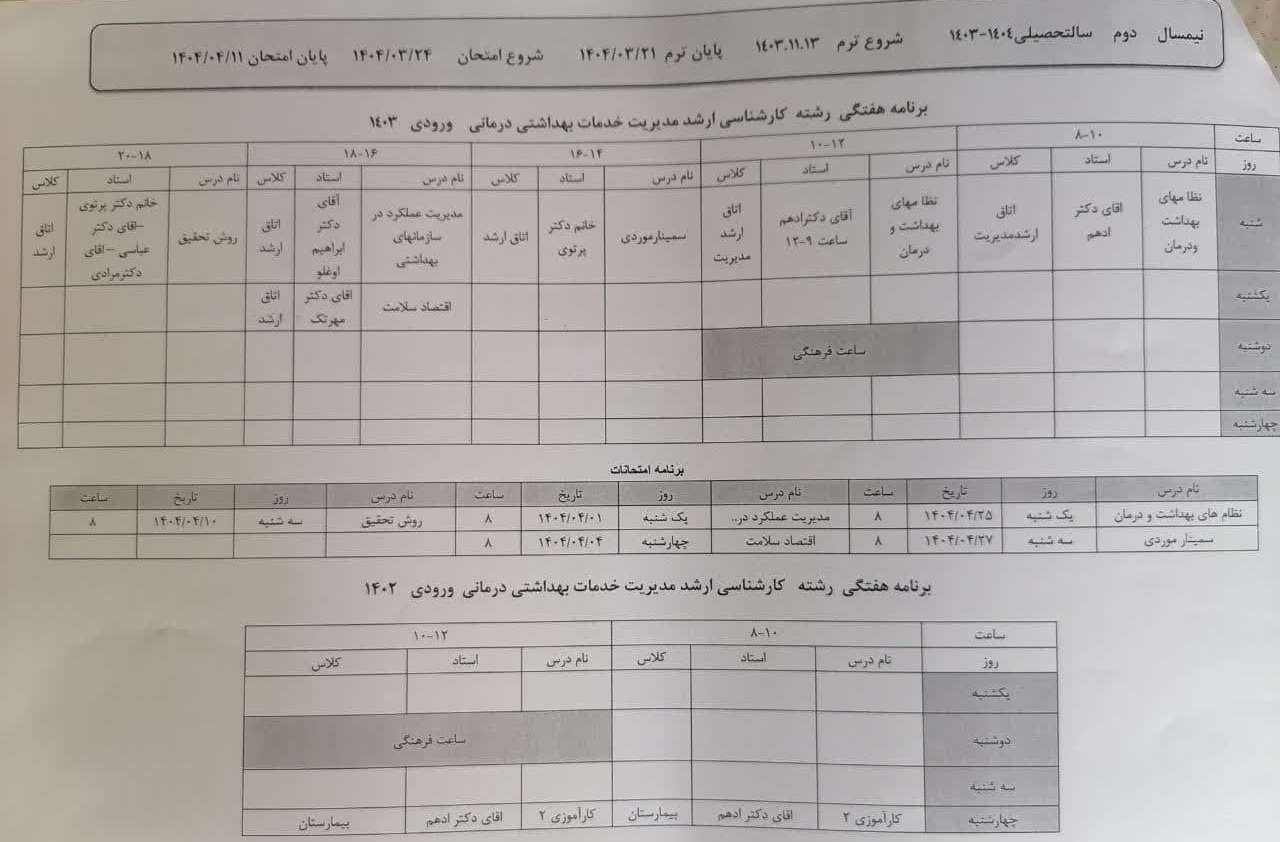 نیمسال دوم سالتحصیلی ۱۴۰۴-۱۴۰۳ شروع ترم ۱۴۰۳.۱۱.۱۳ پایان ترم ۱۴۰۴/۰۳/۲۱ شروع امتحان ۱۴۰۴/۰۳/۲۴ پایان امتحان ۱۴۰۴/۰۴/۱۱
برنامه هفتگی رشته کارشناسی ارشد مدیریت خدمات بهداشتی درمانی ورودی ۱۴۰۳
ساعت ۸-۱۰ ۱۰-۱۲ ۱۴-۱۶ ۱۶-۱۸ ۱۸-۲۰
روز نام درس استاد کلاس نام درس استاد کلاس نام درس استاد کلاس نام درس استاد کلاس نام درس استاد کلاس
شنبه نظا مهای بهداشت ودرمان اقای دکتر ادهم اتاق ارشدمدیریت نظا مهای بهداشت و درمان آقای دکترادهم ساعت ۹-۱۲ اتاق ارشد مدیریت سمینارموردی خانم دکتر پرتوی اتاق ارشد مدیریت عملکرد در سازمانهای بهداشتی آقای دکتر ابراهیم اوغلو اتاق ارشد روش تحقیق خانم دکتر پرتوی -اقای دکتر عباسی –اقای دکترمرادی اتاق ارشد
یکشنبه اقتصاد سلامت اقای دکتر مهرتک اتاق ارشد
دوشنبه ساعت فرهنگی
سه شنبه
چهارشنبه
برنامه امتحانات
نام درس روز تاریخ ساعت نام درس روز تاریخ ساعت نام درس روز تاریخ ساعت
نظام های بهداشت و درمان یک شنبه ۱۴۰۴/۰۴/۲۵ ۸ مدیریت عملکرد در.. یک شنبه ۱۴۰۴/۰۴/۰۱ ۸ روش تحقیق سه شنبه ۱۴۰۴/۰۴/۱۰ ۸
سمینار موردی سه شنبه ۱۴۰۴/۰۴/۲۷ ۸ اقتصاد سلامت چهارشنبه ۱۴۰۴/۰۴/۰۴ ۸
برنامه هفتگی رشته کارشناسی ارشد مدیریت خدمات بهداشتی درمانی ورودی ۱۴۰۲
ساعت ۸-۱۰ ۱۰-۱۲
روز نام درس استاد کلاس نام درس استاد کلاس
یکشنبه
دوشنبه ساعت فرهنگی
سه شنبه
چهارشنبه کارآموزی ۲ اقای دکتر ادهم بیمارستان کارآموزی ۲ اقای دکتر ادهم بیمارستان